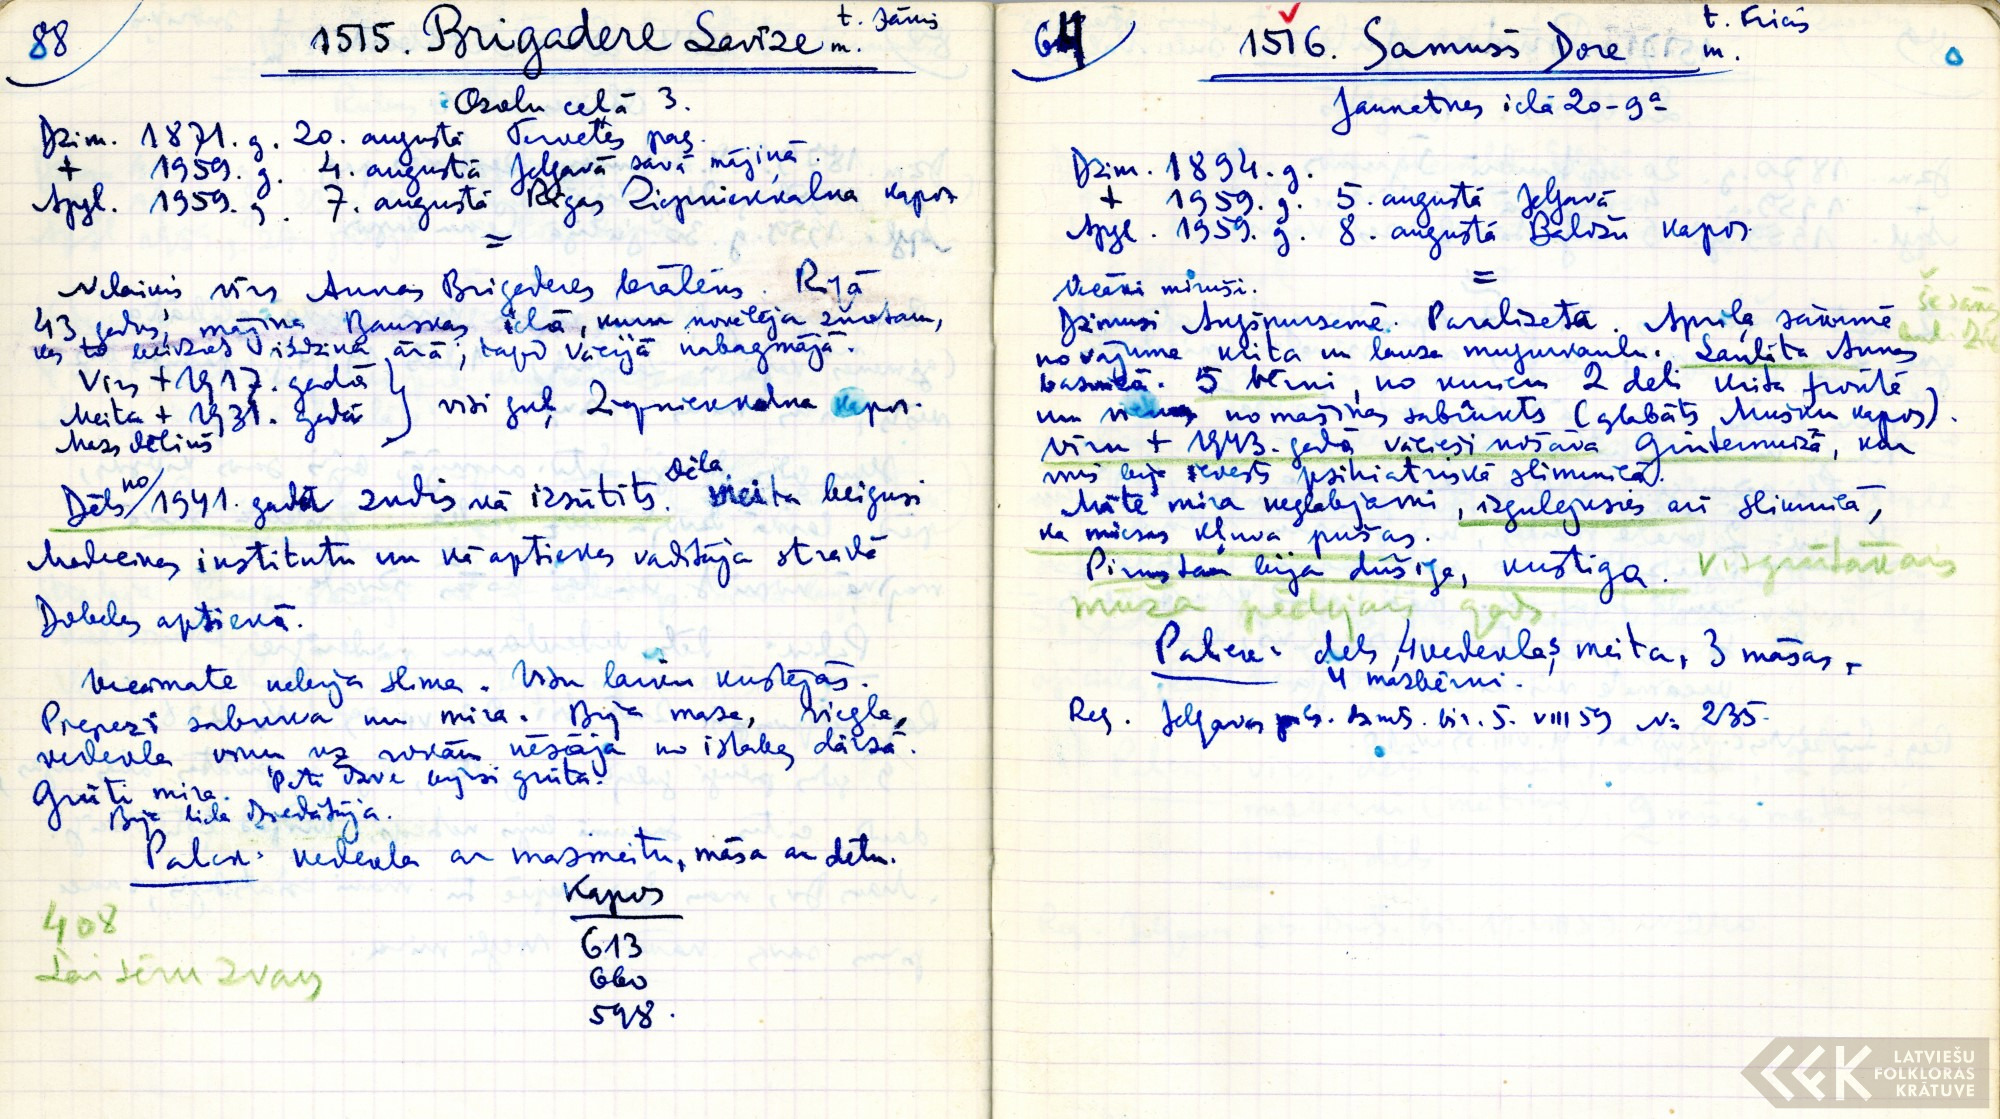 88
1515. Brigadere Lavīze t. Jānis
m.
Ozolu ceļā 3.
Dzim. 1871. g. 20. augustā Tērvetes pag.
+ 1959. g. 4. augustā Jelgavā savā mājiņā.
Apgl. 1959. g. 7. augustā Rīgas Ziepniekkalna kapos
=
Nelaiķis vīrs Annas Brigaderes brālēns. Rīgā
43 gadus, mājiņa Bauskas ielā, kuru
ārā, Vācijā nabagmājā.
Vīrs + 1917. gadā
Meita + 1931. gadā } visi guļ Ziepniekkalna kapos.
Mazdēliņš
Dēls no 1941. gada zudis kā izsūtīts. Dēla meita beigusi
Medicīnas institutu un kā aptiekas vadītāja strādā
Dobeles aptiekā.
Vecmāte nebija slima. Visu laiku kustējās.
Piepeži sabruka un mira. Bija maza, viegla,
vedekla viņu uz rokām nēsāja no istabas dārzā.
Grūti mira. Pati dzīve bijusi grūta.
Bija liela dziedātāja.
Paliek: vedekla ar mazmeitu, māsa ar dēlu.
Kapos
613
660
598.
408
Lai sēru zvans
64
1516. Samušs Dore t. Fricis
m.
Jaunatnes ielā 20-9a
Dzim. 1894. g.
+ 1959. g. 5. augustā Jelgavā
Apgl. 1959. g. 8. augustā Baložu kapos
=
Vecāki miruši.
Dzimusi Augšzemē. Paralizēta. Aprīļa sākumā
no vājuma krita un lauza mugurkaulu. Laulāta Annas
baznīcā. 5 bērni, no kuriem 2 dēli krita frontē
un viens no mašīnas sabraukts (glabāts Mušku kapos).
Vīru + 1943. gadā vācieši nošāva Gintermuižā, kur
viņš bija ievests psihiatriskā slimnīcā.
Māte mira neglābjami, izgulējusies arī slimnīcā,
ka miesas kļuva pušas.
Pirmstam bija dūšīga, kustīga. Visgrūtākais
mūža pēdējais gads.
Paliek: dēls, 4 vedeklas, meita, 3 māsas,
4 mazbērni.
Reģ. Jelgavas pils. dzmš. bir. 5. VIII 59 № 235.
LATVIEŠU
FOLKLORAS
KRĀTUVE